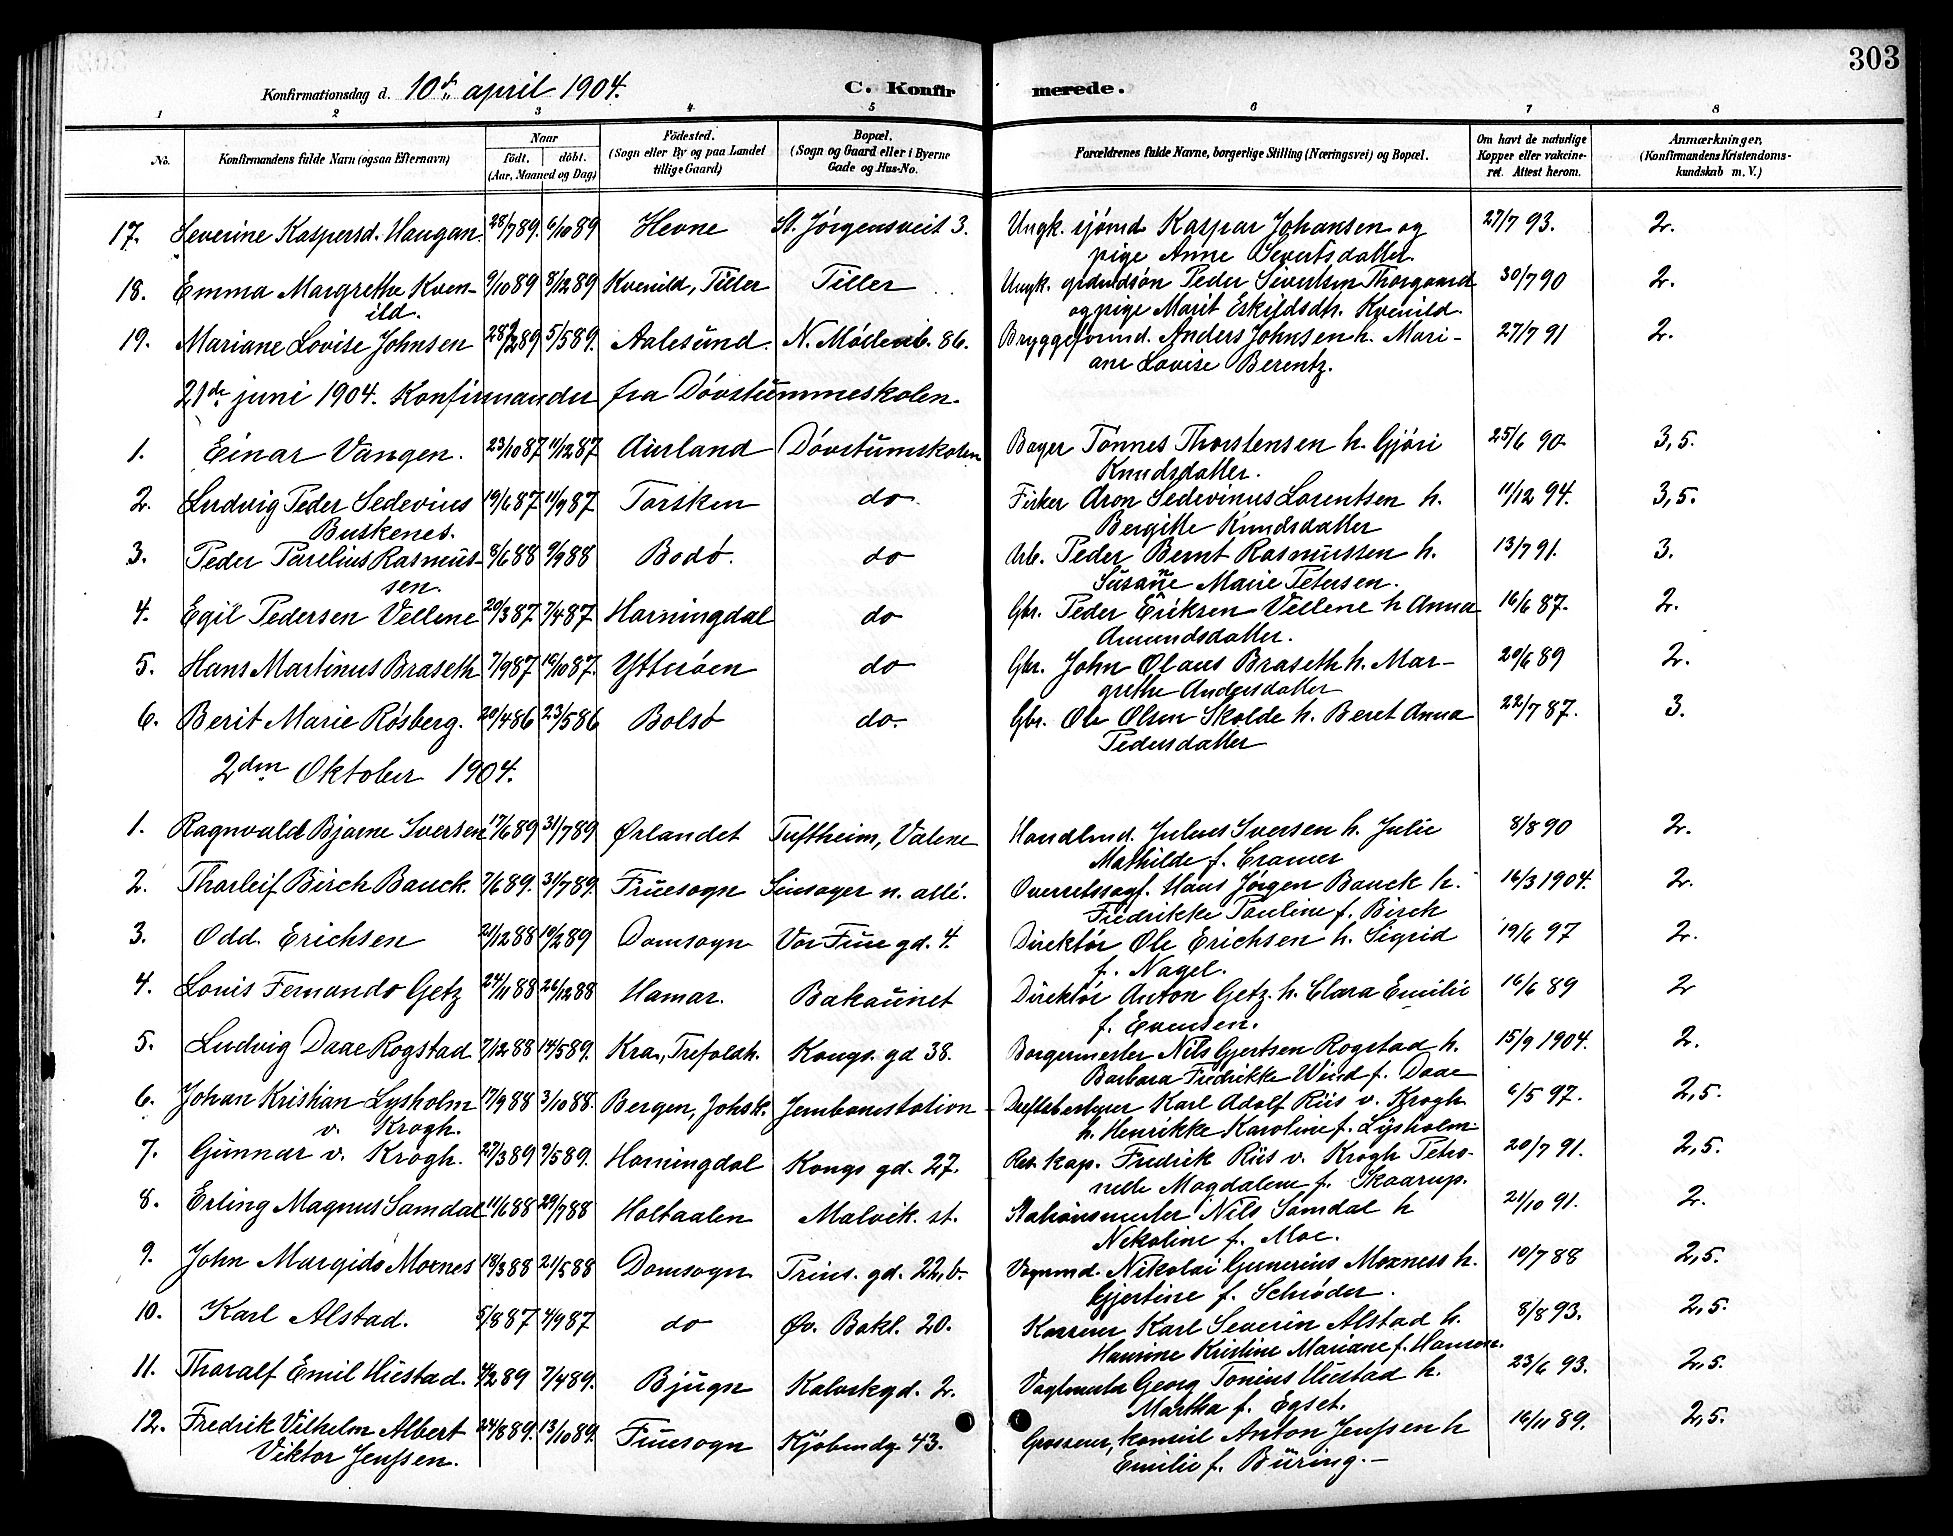 303
Konfirmationsdag d. 10de april 1904. C. Konfirmerede.
1 2 3 4 5 6 7 8
No. Konfirmandens fulde Navn (ogsaa Efternavn) Naar födt. döbt. (Aar, Maaned og Dag) Födested. (Sogn eller By og paa Landet tillige Gaard) Bopæl. (Sogn og Gaard eller i Byerne Gade og Hus-No. Forældrenes fulde Navne, borgerlige Stilling (Næringsvei) og Bopæl. Om havt de naturlige Kopper eller vakcineret. Attest herom. Anmærkninger, (Konfirmandens Kristendomskundskab m. V.)
17. Severine Kaspersd. Haugan. 28/7 89. 6/10 89 Hevne St. Jørgensveit 3. Ungk. sjømd. Kaspar Johansen og 27/7 93. 2.
pige Anne Severtsdatter.
18. Emma Margrethe Kven- 9/10 89 8/12 89 Kvenild, Tiller Tiller Ungk. grdmdsøn Peder Sivertsen Thorgaard 30/7 90 2.
ild. og pige Marit Eskildsdtr. Kvenild.
19. Mariane Lovise Johnsen 28/2 89 5/5 89. Aalesund. N. Møllenb. 86. Bryggeformd. Anders Johnsen h. Mari- 27/7 91 2.
ane Lovise Berentz.
21de juni 1904. Konfirmander fra Døvstummeskolen.
1. Einar Vangen. 23/10 87 11/12 87 Aurland Døvstumskolen Bager Tønnes Thorstensen h. Gjøri 25/6 90. 3,5.
Knudsdatter.
2. Ludvig Peder Sedevius 19/6 87 11/9 87 Torsken do. Fisker Aron Sedevinus Lorentsen h. 11/12 94. 3,5.
Buskenes. Bergitte Knudsdatter
3. Peder Parelius Rasmus- 8/6 88 9/9 88 Bodø. do Arb. Peder Bernt Rasmussen h. 13/7 91. 3.
sen. Susanne Marie Petersen.
4. Egil Pedersen Vellene 20/3 87 7/4 87 Horningdal do Gbr. Peder Eriksen Vellene h Anna 16/6 87. 2.
Amundsdatter.
5. Hans Martinus Braseth 7/9 87 16/10 87. Ytterøen do Gbr. John Olaus Braseth h. Mar- 20/6 89 2.
grethe Andersdatter
6. Berit Marie Røsberg. 20/4 86 23/5 86 Bolsø do. Gbr. Ole Olsen Skolde h. Beret Anna 22/7 87. 3.
Pedersdatter
2den Oktober 1904.
1. Ragnvald Bjarne Iversen 17/6 89 31/7 89 Ørlandet Tuftheim, Valene Handlmd. Julius Iversen h. Julie 8/8 90 2.
Mathilde f. Cramer
2. Tharleif Birch Bauck. 7/6 89. 31/7 89. Fruesogn n. allé. Overretssagf. Hans Jørgen Bauck h. 16/3 1904. 2.
Fredrikke Pauline f. Birch
3. Odd. Erichsen 21/12 88 10/2 89 Domsogn Vor Frue gd. 4. Direktør Ole Erichsen h. Sigrid 19/6 97 2.
f. Nagel.
4. Louis Fernando Getz 24/11 88 26/12 88 Hamar. Bakaunet Direktør Anton Getz. h. Clara Emilie 16/6 89 2
f. Evensen.
5. Ludvig Daae Rogstad 7/12 88 14/5 89. Kra., Trefoldh. Kongs. gd 38. Borgermester Nils Gjertsen Rogstad h. 15/9 1904. 2.
Barbara Fredrikke Wind f. Daae
6. Johan Kristian Lysholm 17/9 88 3/10 88. Bergen, Johsk. Jernbanestation Driftsbestyrer Karl Adolf Riis v. Krogh 6/5 97. 2,5.
v. Krogh. h. Henrikke Karoline f. Lysholm.
7. Gunnar v. Krogh. 27/3 89 9/5 89. Horningdal Kongs gd. 27. Rit. kap. Fredrik Riis v. Krogh Petro- 20/7 91. 2,5.
nelle Magdalene f. Skaarup.
8. Erling Magnus Samdal 11/6 88 29/7 88 Holtaalen Malvik. st. Stationsmester Nils Samdal h 21/10 91. 2.
Nikoline f. Moe.
9. John Margido Moxnes 18/3 88 21/5 88 Domsogn Prins. gd. 22,b. Vognmd. Nikolai Gunerius Moxness h. 10/7 88 2,5.
Gjertine f. Schrøder.
10. Karl Alstad. 5/8 87 4/9 87 do Øv. Bakl. 20. Kasserer Karl Severin Alstad h. 8/8 93. 2,5.
Hansine Kristine Mariane f. Hansen.
11. Tharalf Emil Hiestad. 4/2 89 7/4 89. Bjugn Kalvskgd. 2. Vagtmester Georg Tonius Hiestad h. 23/6 93. 2,5.
Martha f. Egset.
12. Fredrik Vilhelm Albert 24/8 89. 13/10 89. Fruesogn Kjøbmdg. 43. Grosserer, konsul Anton Jenssen h 16/11 89. 2,5.
Viktor Jenssen. Emilie f. Büring.-